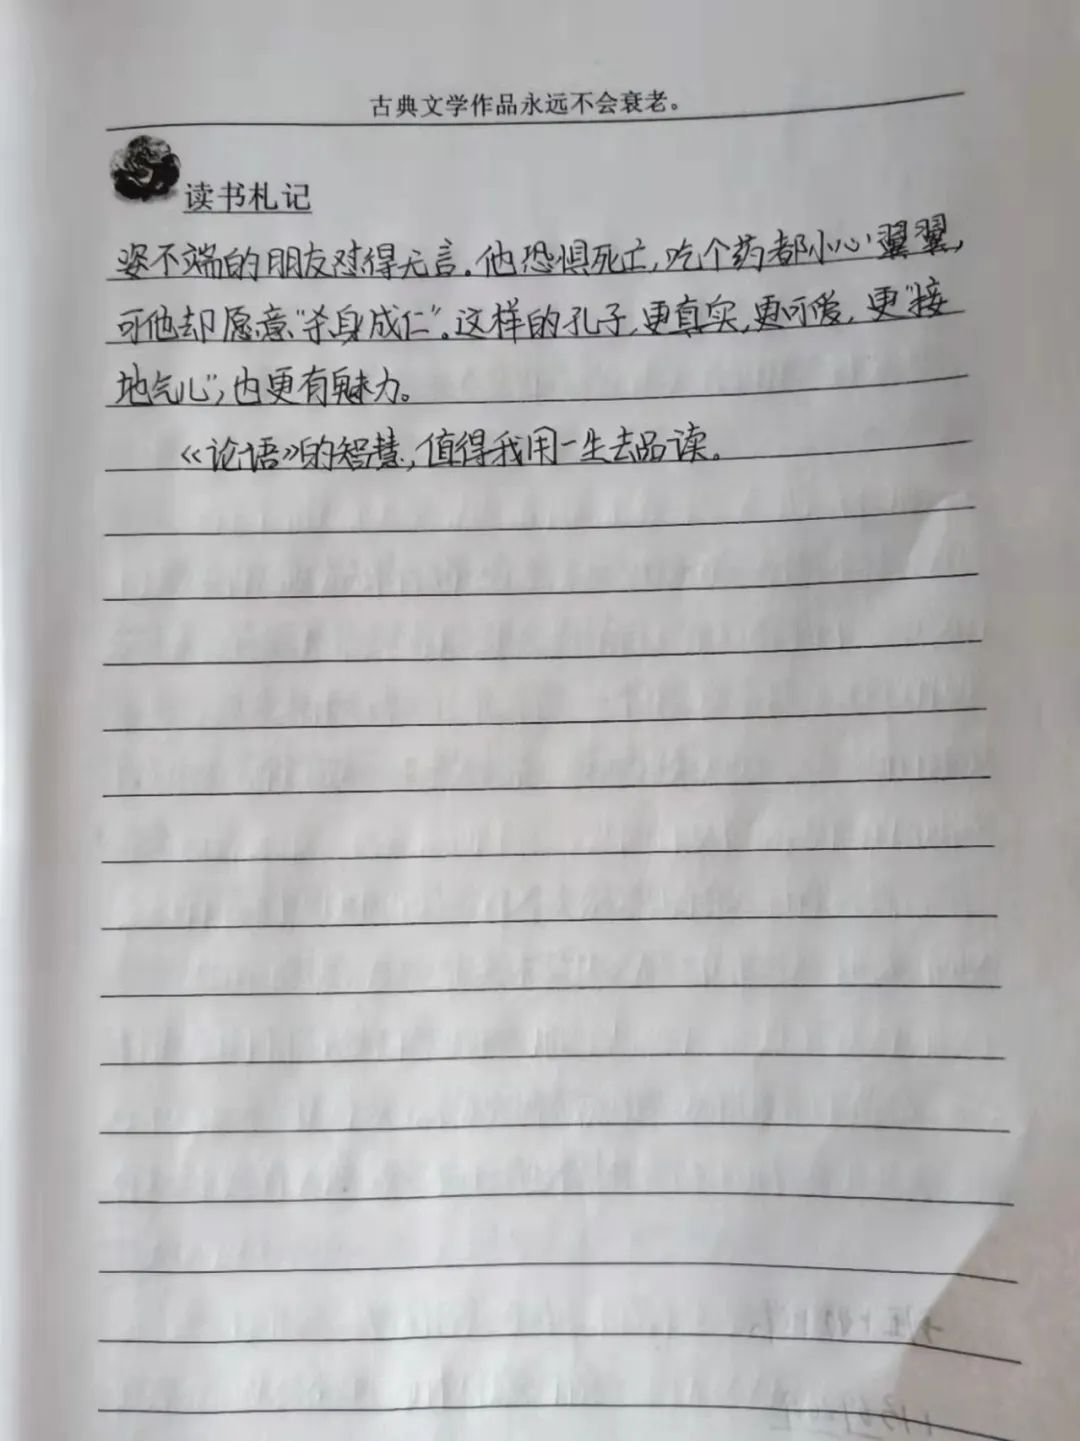 古典文学作品永远不会衰老。
读书札记
姿不端的朋友怼得无言。他恐惧死亡,吃个药都小心翼翼,
可他却愿意“杀身成仁”。这样的孔子,更真实,更可爱,更“接
地气儿”,也更有魅力。
《论语》的智慧,值得我用一生去品读。